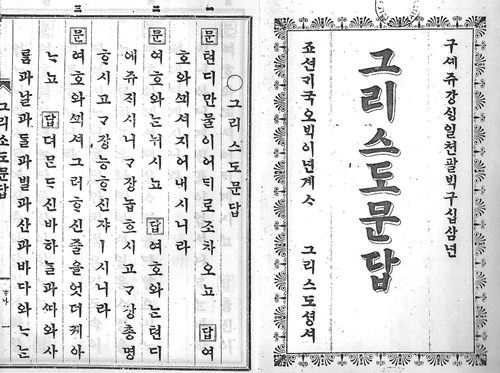 구셰쥬강ᄉᆡᆼ일쳔팔ᄇᆡᆨ구십삼년
그리스도문답
죠션ᄀᆡ국오ᄇᆡᆨ이년계ᄉᆞ 그리스도셩셔
一 二 三
○그리스도문답
문 텬디만물이어ᄃᆡ로조차오뇨 답 여
호와ᄭᅴ셔지어내시니라
문 여호와ᄂᆞᆫ뉘시뇨 답 여호와ᄂᆞᆫ텬디
에쥬ᄌᆡ시니ᄀᆞ장놉흐시고ᄀᆞ장총명
ᄒᆞ시고ᄀᆞ장능ᄒᆞ신쟈ㅣ시니라
문 여호와ᄭᅴ셔그러ᄒᆞ신줄을엇더케아
ᄂᆞ뇨 답 더ᄆᆞᆫᄃᆞ신바하ᄂᆞᆯ과ᄯᅡ와사
ᄅᆞᆷ과날과ᄃᆞᆯ과별과산과바다와
그리스도문답